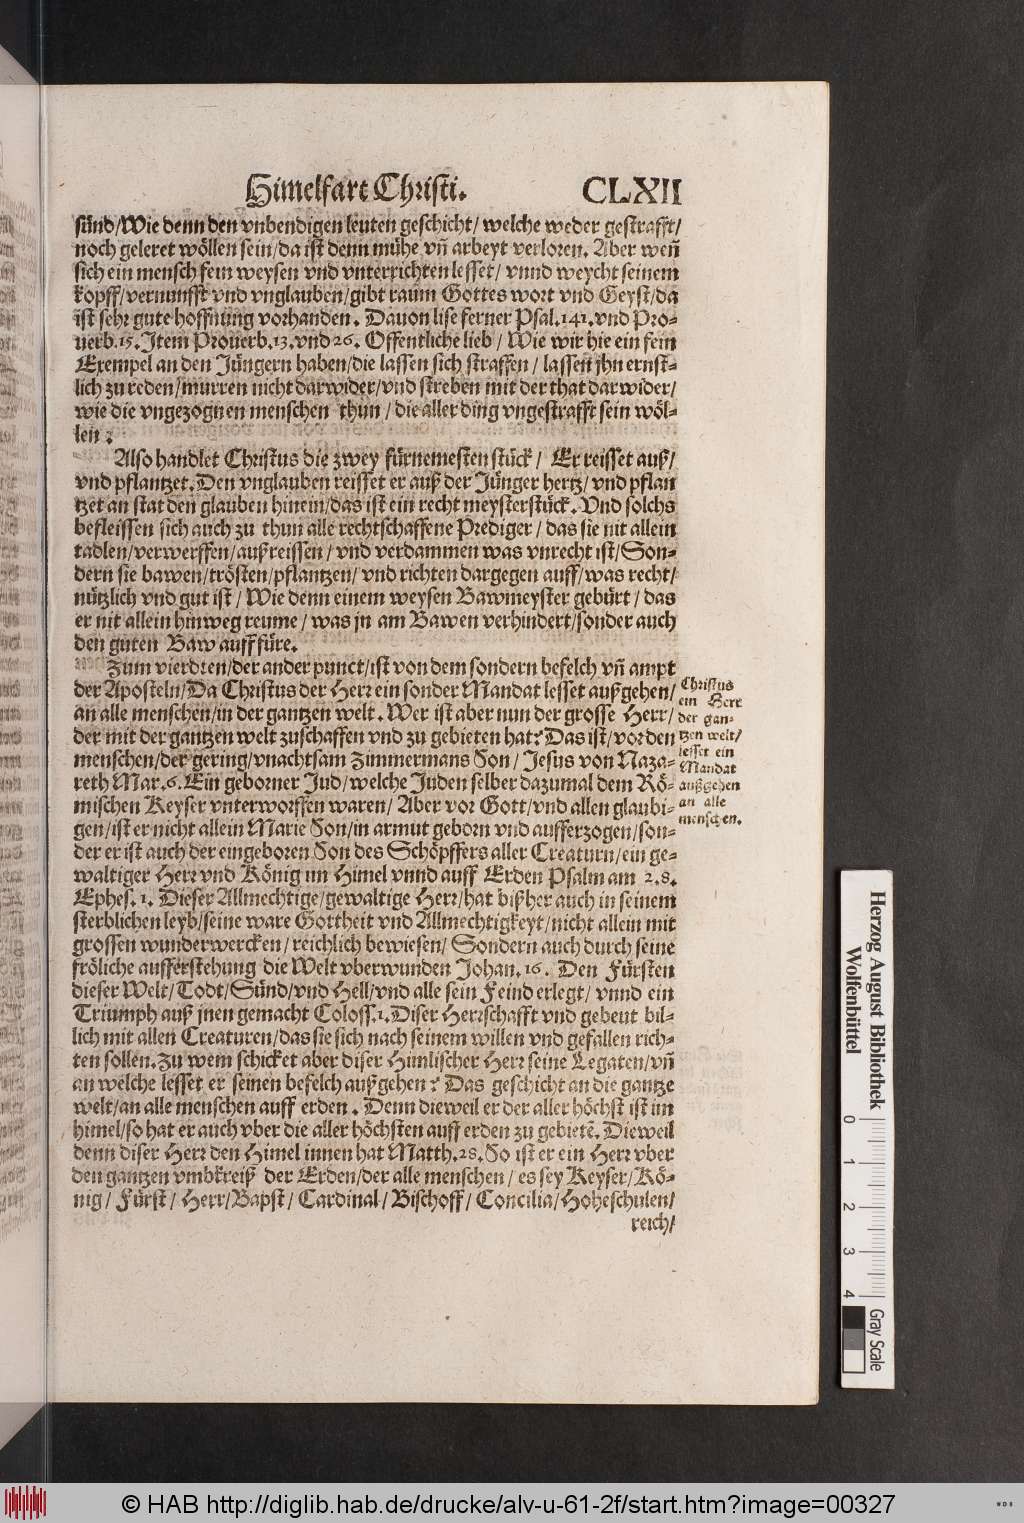 Himelfart Christi. CLXII
sünd/Wie denn den vnbendigen leuten geschicht/ welche weder gestrafft/
noch geleret wöllen sein/da ist denn mühe vñ arbeyt verloren. Aber weñ
sich ein mensch fein weysen vnd vnterrichten lesset/ vnnd weycht seinem
kopff/vernunfft vnd vnglauben/gibt raum Gottes wort vnd Geyst/da
ist sehr gute hoffnung vorhanden. Dauon lise ferner Psal.141.vnd Pro-
uerb.15. Item Prouerb.13.vnd 26. Offentliche lieb/ Wie wir hie ein fein
Exempel an den Jüngern haben/die lassen sich straffen/ lassen jhn ernst-
lich zu reden/murren nicht darwider/vnd streben mit der that darwider/
wie die vngezognen menschen thun/ die aller ding vngestrafft sein wöl-
len:
Also handlet Christus die zwey fürnemesten stück/ Er reisset auß/
vnd pflantzet. Den vnglauben reisset er auß der Jünger hertz/ vnd pflan
tzet an stat den glauben hinein/das ist ein recht meysterstück. Vnd solchs
befleissen sich auch zu thun alle rechtschaffene Prediger/ das sie nit allein
tadlen/verwerffen/außreissen/ vnd verdammen was vnrecht ist/Son-
dern sie bawen/trösten/pflantzen/ vnd richten dargegen auff/was recht/
nützlich vnd gut ist/ Wie denn einem weysen Bawmeyster gebürt/ das
er nit allein hinweg reume/ was jn am Bawen verhindert/sonder auch
den guten Baw aufffüre.
Zum vierdten/der ander punct/ist von dem sondern befelch vñ ampt
der Aposteln/Da Christus der Herr ein sonder Mandat lesset außgehen/
an alle menschen/in der gantzen welt. Wer ist aber nun der grosse Herr/
der mit der gantzen welt zuschaffen vnd zu gebieten hat? Das ist/vor den
menschen/der gering/vnachtsam Zimmermans Son/ Jesus von Naza-
reth Mar.6. Ein geborner Jud/welche Juden selber dazumal dem Rö-
mischen Keyser vnterworffen waren/ Aber vor Gott/vnd allen glaubi-
gen/ist er nicht allein Marie Son/in armut geborn vnd aufferzogen/son-
der er ist auch der eingeboren Son des Schöpffers aller Creaturn/ein ge-
waltiger Herr vnd König im Himel vnnd auff Erden Psalm am 2.8.
Ephes. 1. Dieser Allmechtige/gewaltige Herr/hat bißher auch in seinem
sterblichen leyb/seine ware Gottheit vnd Allmechtigkeyt/nicht allein mit
grossen wunderwercken/ reichlich bewiesen/ Sondern auch durch seine
fröliche aufferstehung die Welt vberwunden Johan.16. Den Fürsten
dieser Welt/Todt/Sünd/vnd Hell/vnd alle sein Feind erlegt/ vnnd ein
Triumph auß jnen gemacht Coloss.1. Diser Herrschafft vnd gebeut bil-
lich mit allen Creaturen/das sie sich nach seinem willen vnd gefallen rich-
ten sollen. Zu wem schicket aber diser Himlischer Herr seine Legaten/vñ
an welche lesset er seinen befelch außgehen? Das geschicht an die gantze
welt/an alle menschen auff erden. Denn dieweil er der aller höchst ist im
himel/so hat er auch vber die aller höchsten auff erden zu gebietē. Dieweil
denn diser Herr den Himel innen hat Matth.28. So ist er ein Herr vber
den gantzen vmbkreiß der Erden/der alle menschen/ es sey Keyser/Kö-
nig/ Fürst/ Herr/Bapst/ Cardinal/ Bischoff/ Concilia/Hoheschulen/
reich/
Christus
ein Herr
der gan-
tzen welt/
lesset ein
Mandat
außgehen
an alle
menschen.
Herzog August Bibliothek
Wolfenbüttel
0 1 2 3 4
Gray Scale
© HAB http://diglib.hab.de/drucke/alv-u-61-2f/start.htm?image=00327